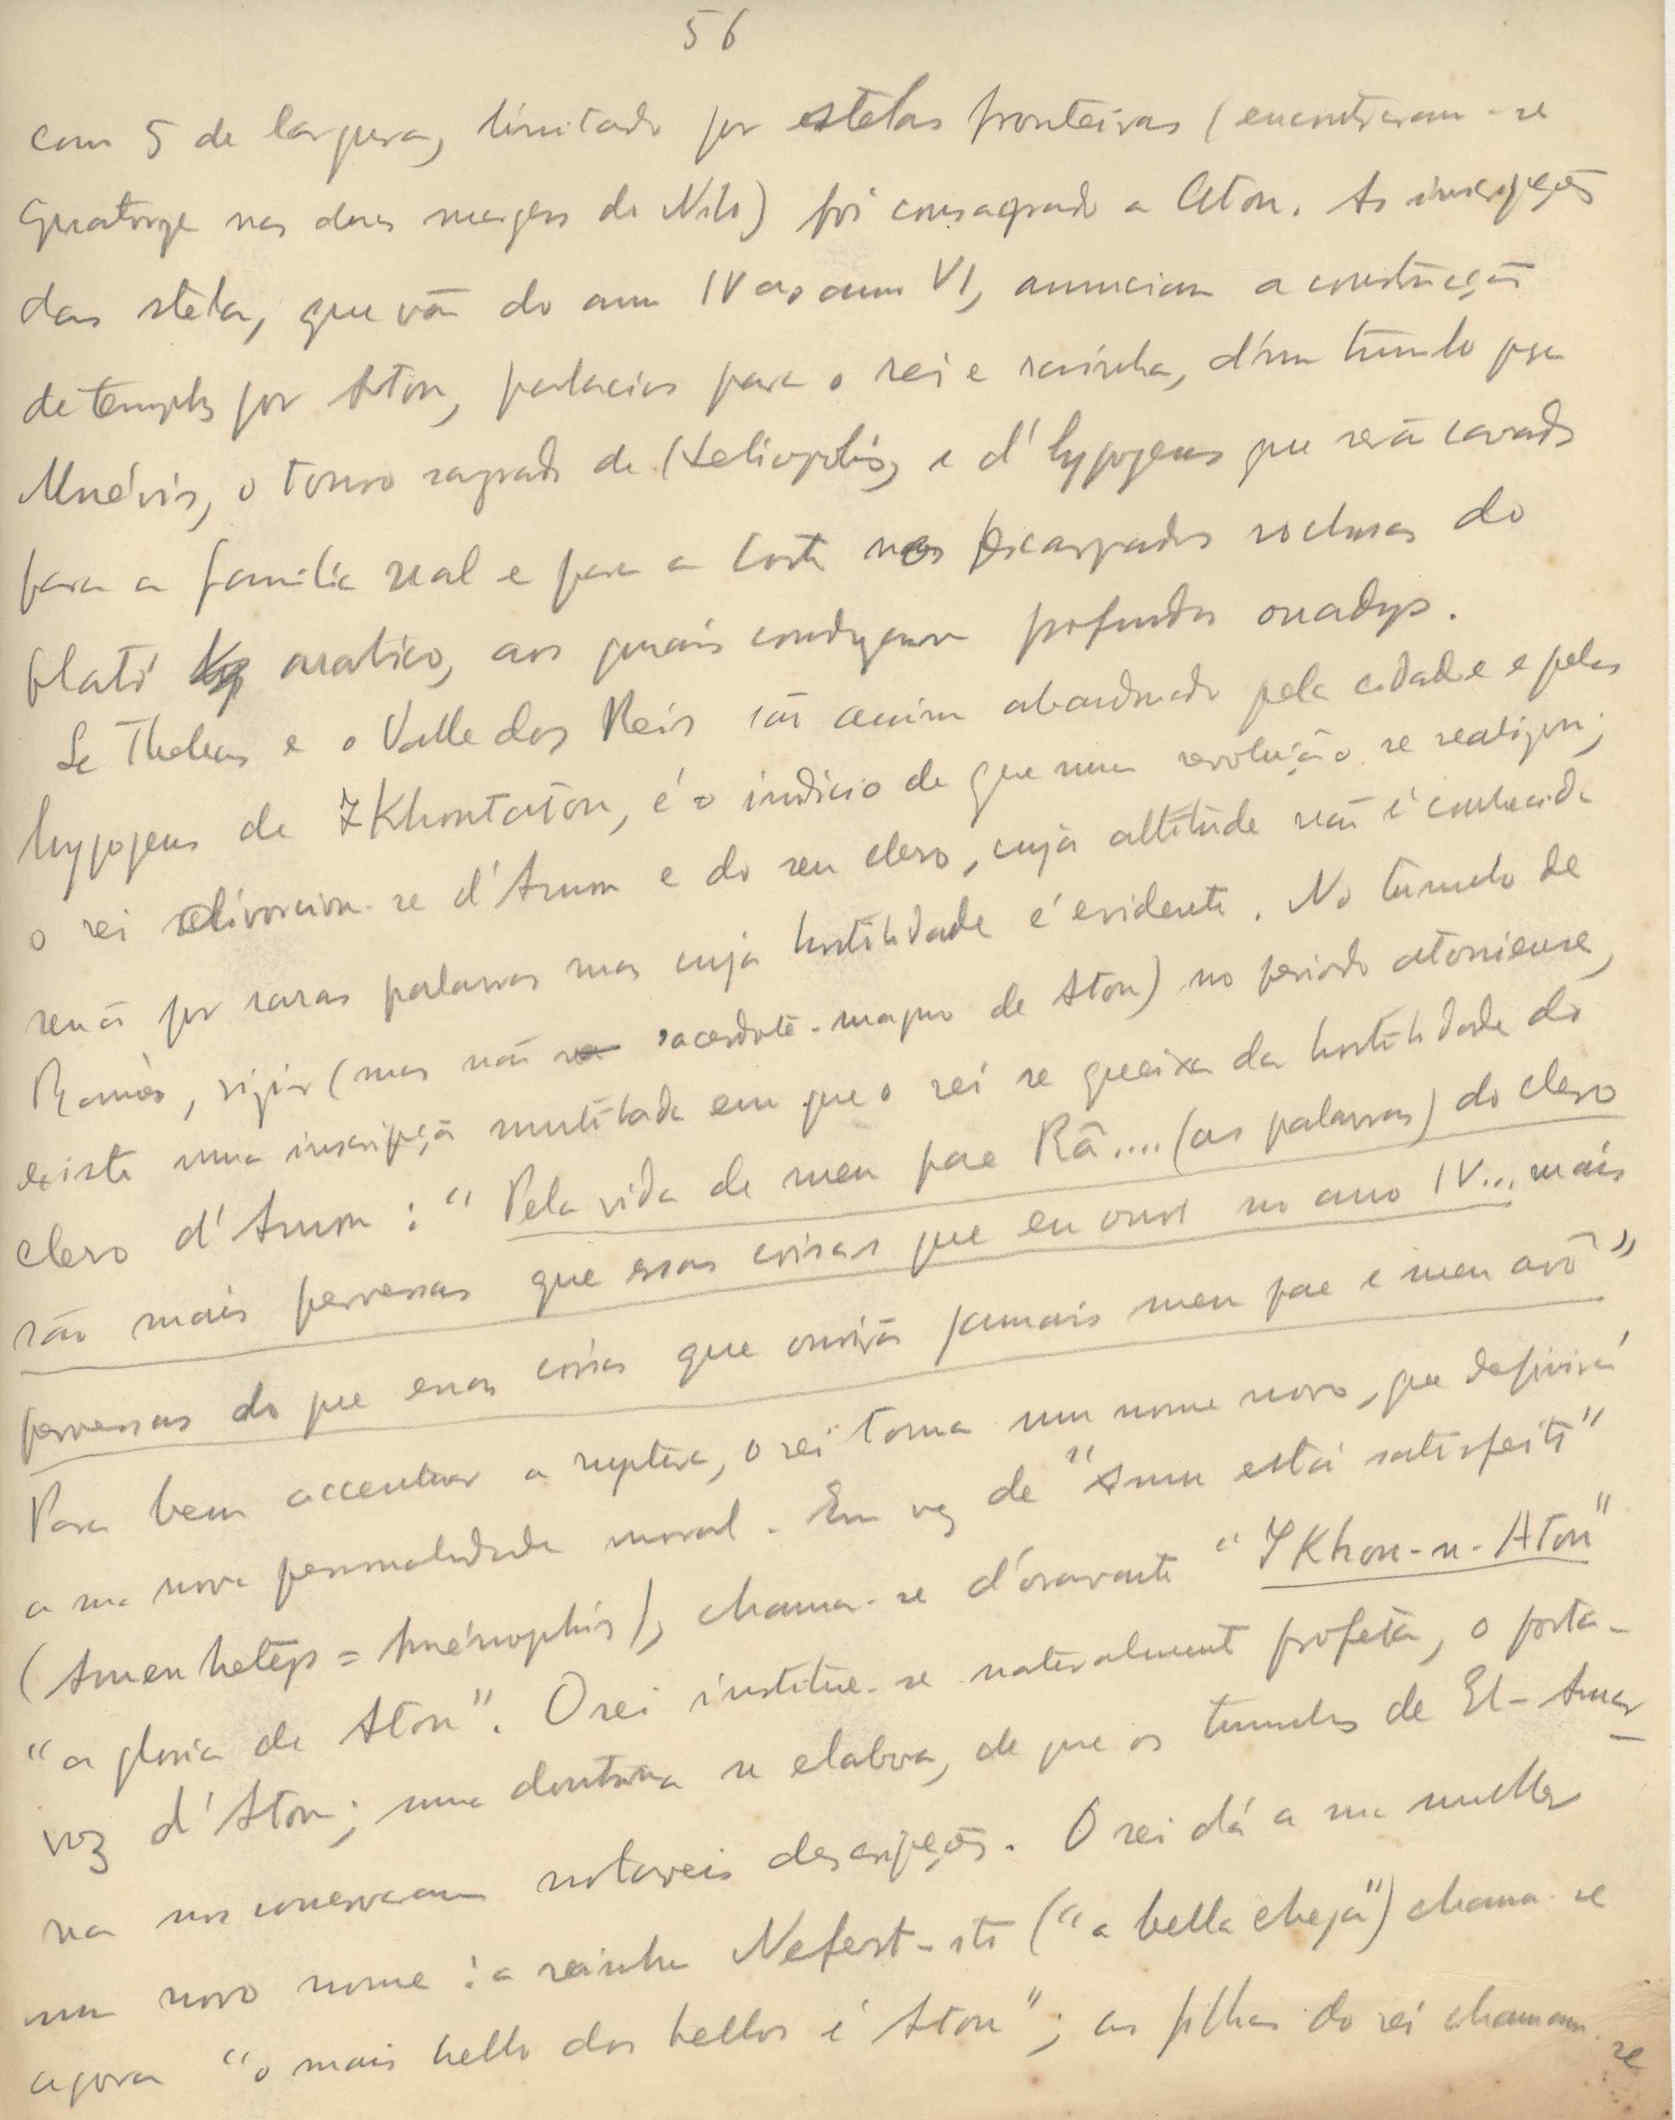 56
com 5 de largura, limitado por estelas fronteiras (encontraram-se
quatorze nas duas margens do Nilo) foi consagrado a Aton. As inscripções
das stelas, que vão do anno IV ao anno VI, annunciam a construcção
de templos por Aton, palacios para o rei e rainha, d'um tumulo para
Mnévis, o touro sagrado de Heliopolis, e d'hypogeus que serão cavados
para a familia real e para a corte nos escarpados rochosos do
platô aratico, aos quais conduzem profundos ouadys.
Se Thebas e o Valle dos Reis são assim abandonado pela cidade e pelos
hypogeus de IKhontaton, é o indicio de que uma revolução se realizou;
o rei divorciou-se d'Amon e do seu clero, cuja attitude não é conhecida
senão por raras palavras mas cuja hostilidade é evidente. No tumulo de
Ramòs, vizir (mas não sacerdote-magno de Aton) no periodo atoniense,
existe uma inscripção mutilada em que o rei se queixa da hostilidade do
clero d'Amon : "Pela vida de meu pae Râ.... (as palavras) do clero
são mais perversas que essas coisas que eu ouvi no ano IV... mais
perversas do que essas coisas que ouvirão jamais meu pae e meu avô"
Para bem accentuar a ruptura, o rei toma um nome novo, que definirá
a sua nova personalidade moral. Em vez de "Amon está satisfeito"
(Amenhetep = Aménophis), chama-se d'oravante "IKhon-n-Aton"
"a gloria de Aton". O rei institue-se naturalmente profeta, o porta-
voz d'Aton; uma doutrina se elabora, de que os tumulos de El-Amar-
na nos conservaram notaveis descripções. O rei dá a sua mulher
um novo nome : a rainha Nefert-iti ("a bella chega") chama-se
agora "o mais bello dos bellos é Aton"; as filhas do rei chamam-se